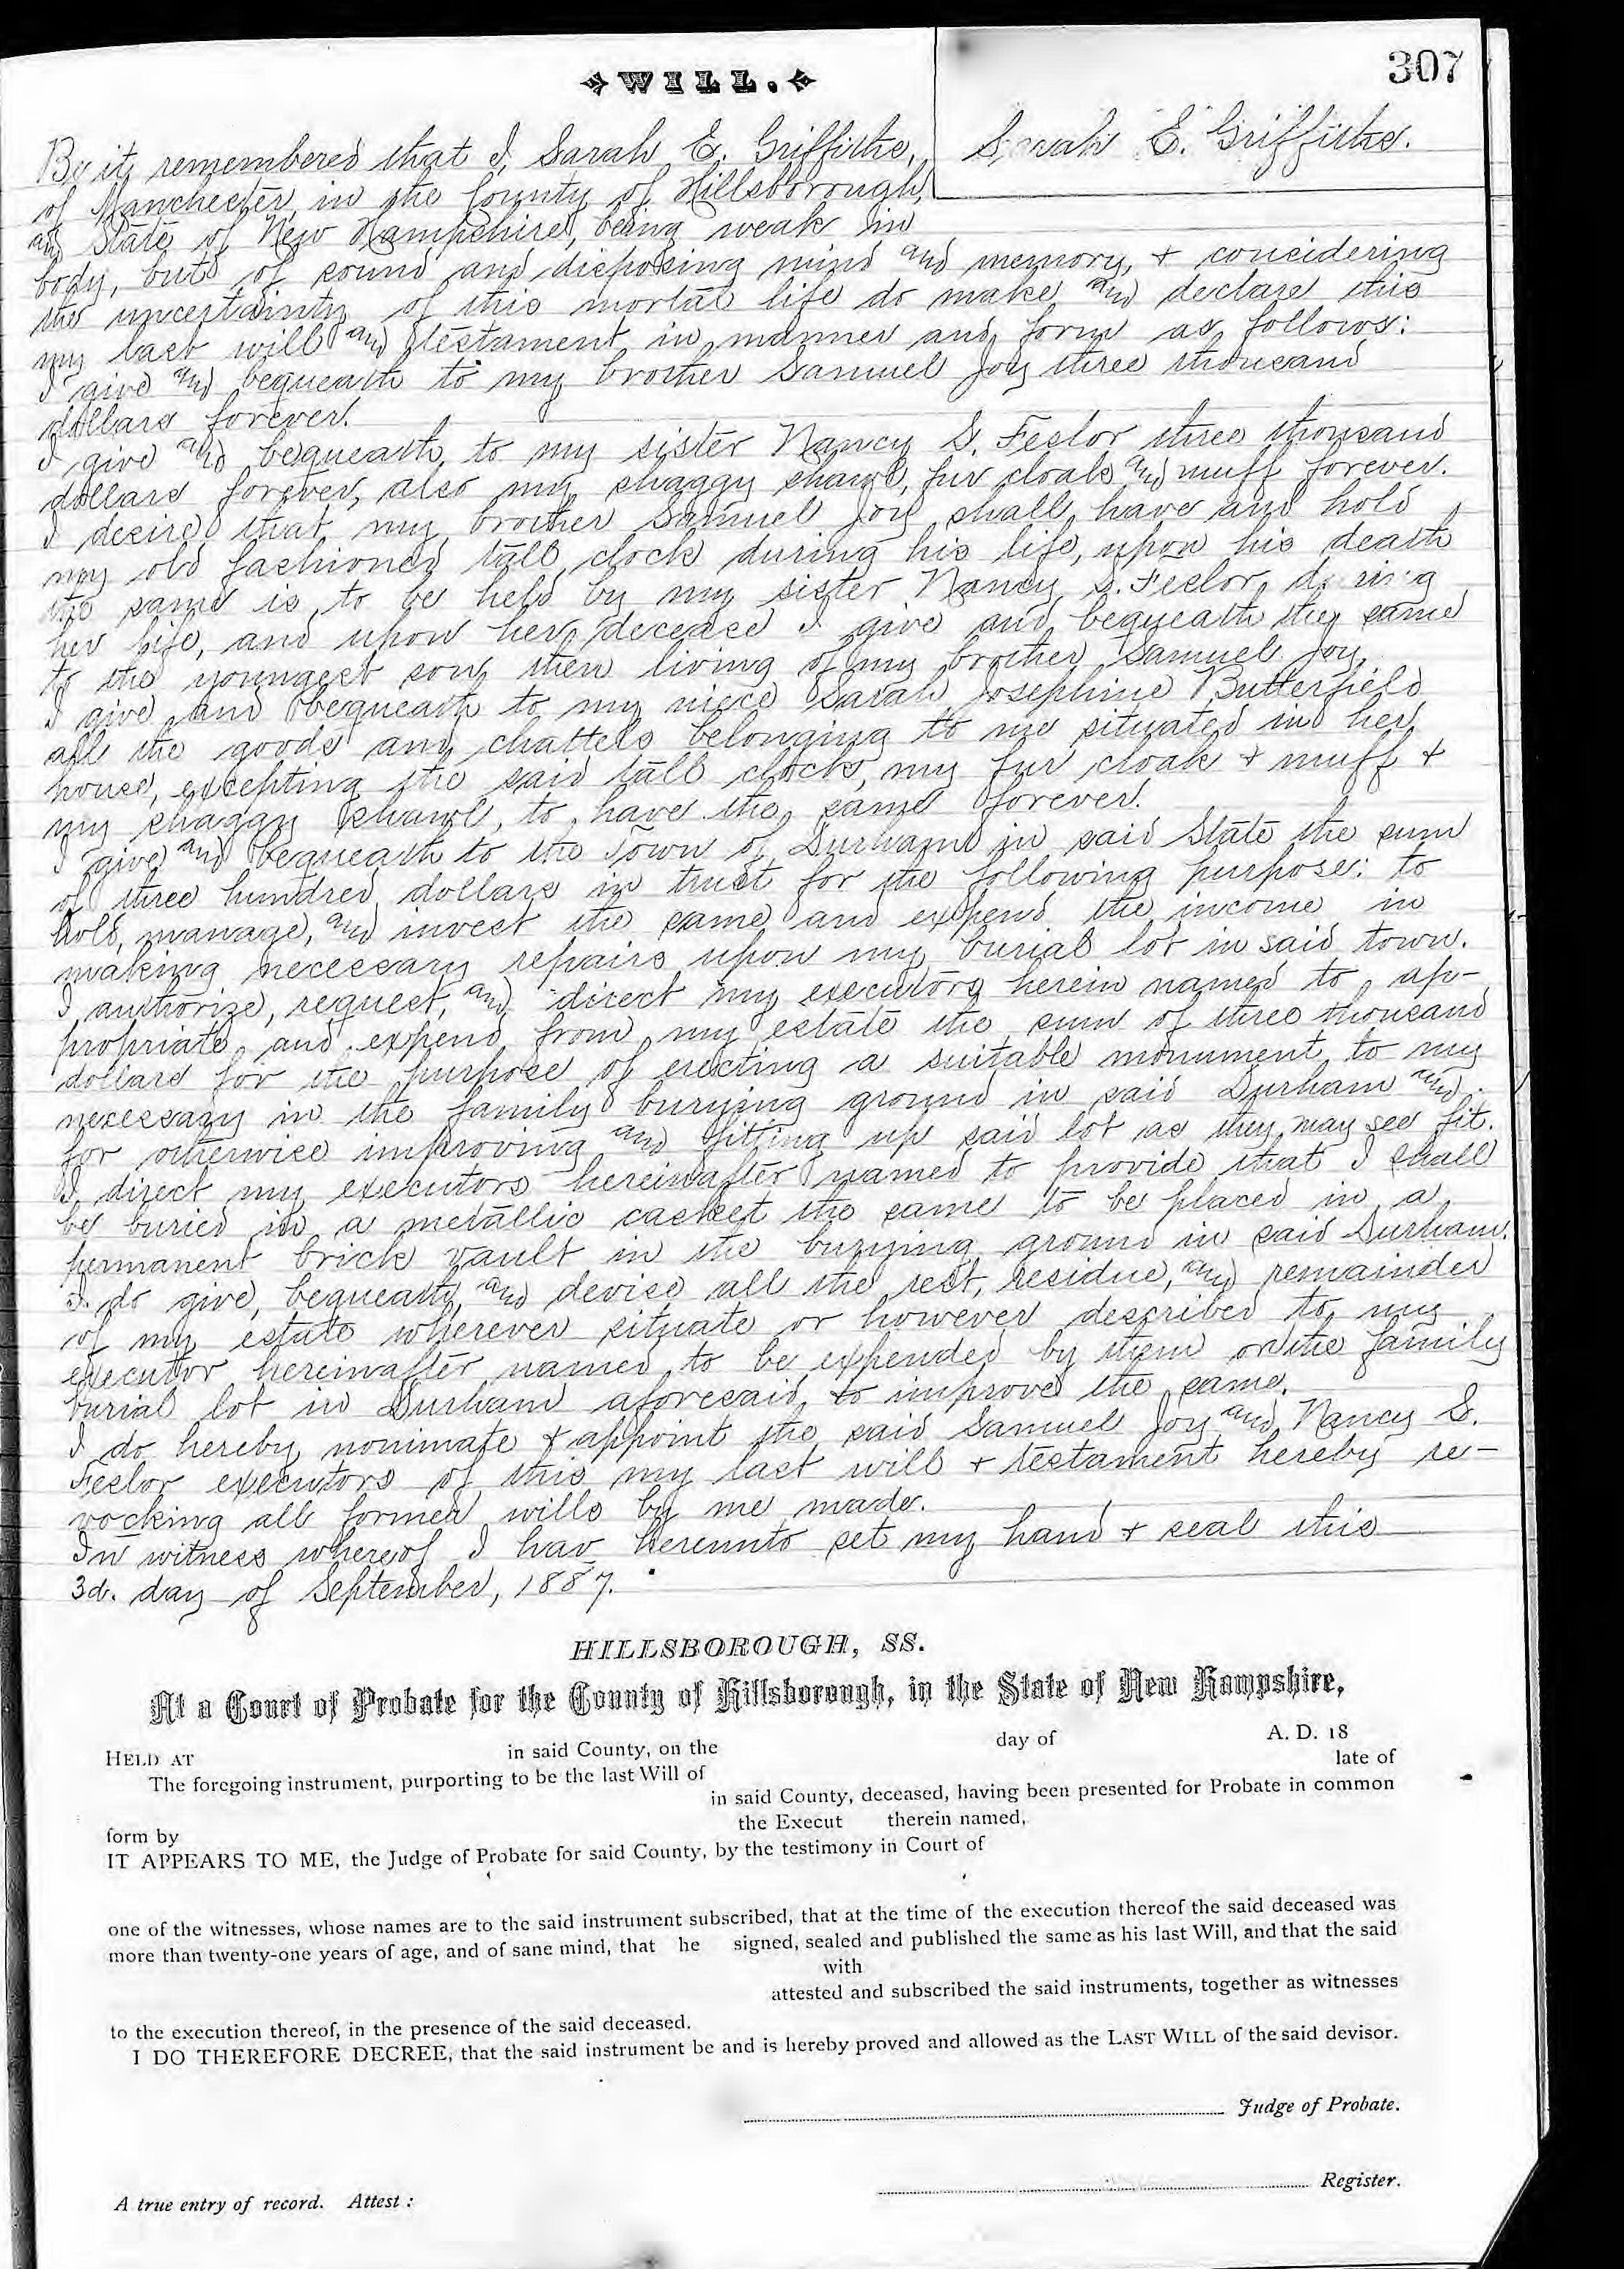 307
WILL.
Sarah E. Griffiths.
Be it remembered that I, Sarah E. Griffiths,
of Manchester in the County of Hillsborough,
and State of New Hampshire, being weak in
body, but of sound and disposing mind and memory, & considering
the uncertainty of this mortal life do make and declare this
my last will and testament in manner and form as follows:
I give and bequeath to my brother Samuel Joy three thousand
dollars forever.
I give and bequeath to my sister Nancy S. Feslor three thousand
dollars forever, also my shaggy shawl, fur cloak and muff forever.
I desire that my brother Samuel Joy shall have and hold
my old fashioned tall clock during his life, upon his death
the same is to be held by my sister Nancy S. Feslor during
her life, and upon her decease I give and bequeath the same
to the youngest son then living of my brother Samuel Joy.
I give and bequeath to my niece Sarah Josephine Butterfield
all the goods and chattels belonging to me situated in her
house, excepting the said tall clock, my fur cloak & muff &
my shaggy shawl, to have the same forever.
I give and bequeath to the Town of Durham in said State the sum
of three hundred dollars in trust for the following purpose: to
hold, manage, and invest the same and expend the income in
making necessary repairs upon my burial lot in said town.
I authorize, request, and direct my executors herein named to ap-
propriate and expend from my estate the sum of three thousand
dollars for the purpose of erecting a suitable monument to my
necessary in the family burying ground in said Durham and
for otherwise improving and fitting up said lot as they may see fit.
I direct my executors hereinafter named to provide that I shall
be buried in a metallic casket the same to be placed in a
permanent brick vault in the burying ground in said Durham.
I do give, bequeath, and devise all the rest, residue, and remainder
of my estate wherever situate or however described to my
executor hereinafter named to be expended by them on the family
burial lot in Durham aforesaid, to improve the same.
I do hereby nonimate & appoint the said Samuel Joy and Nancy S.
Feslor executors of this my last will & testament hereby re-
vocking all former wills by me made.
In witness whereof I hav hereunto set my hand & seal this
3d. day of September, 1887.
HILLSBOROUGH, SS.
At a Court of Probate for the County of Hillsborough, in the State of New Hampshire,
HELD AT in said County, on the day of A. D. 18
The foregoing instrument, purporting to be the last Will of late of
in said County, deceased, having been presented for Probate in common
form by the Execut therein named,
IT APPEARS TO ME, the Judge of Probate for said County, by the testimony in Court of
one of the witnesses, whose names are to the said instrument subscribed, that at the time of the execution thereof the said deceased was
more than twenty-one years of age, and of sane mind, that he signed, sealed and published the same as his last Will, and that the said
with
attested and subscribed the said instruments, together as witnesses
to the execution thereof, in the presence of the said deceased.
I DO THEREFORE DECREE, that the said instrument be and is hereby proved and allowed as the LAST WILL of the said devisor.
Judge of Probate.
A true entry of record. Attest: Register.